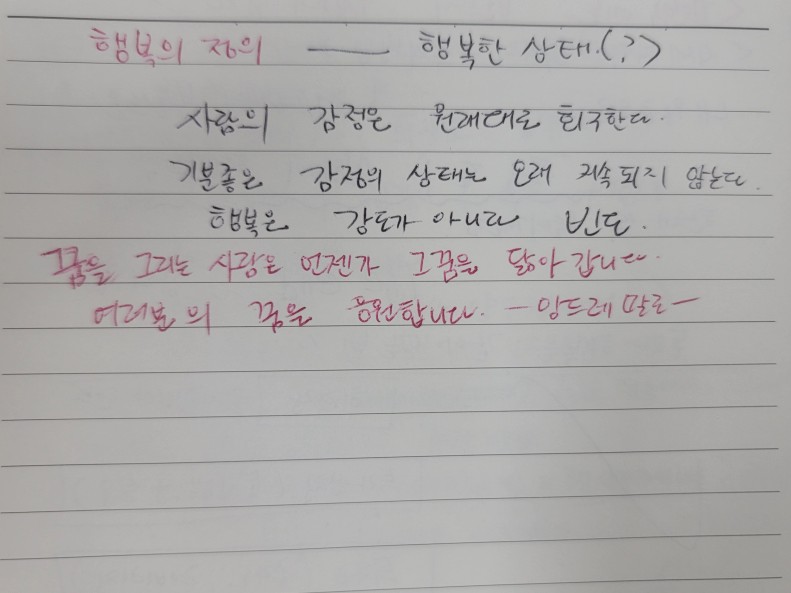 행복의 정의 —— 행복한 상태.(?)
사람의 감정은 원래대로 회귀한다.
기분좋은 감정의 상태는 오래 지속되지 않는다.
행복은 강도가 아니라 빈도.
꿈을 그리는 사람은 언젠가 그 꿈을 닮아 갑니다.
여러분의 꿈을 응원합니다. - 앙드레 말로 -